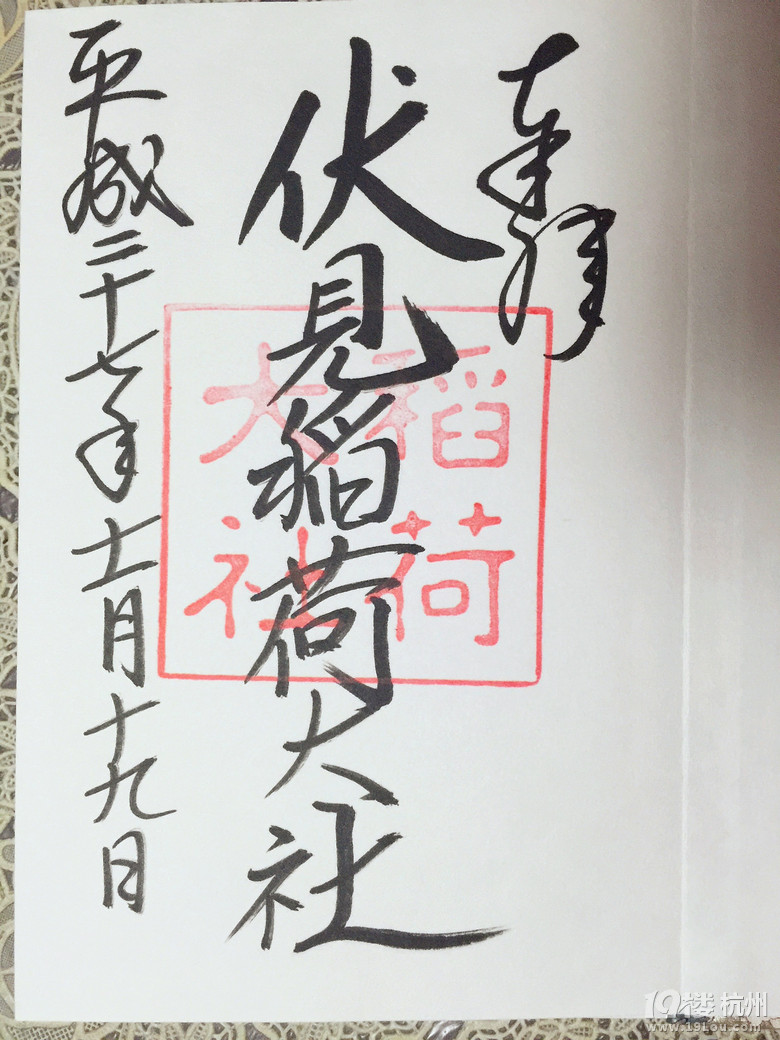 奉拝
伏見稲荷大社
平成二十七年十一月十九日
稲荷
大社
19楼 杭州
www.19lou.com